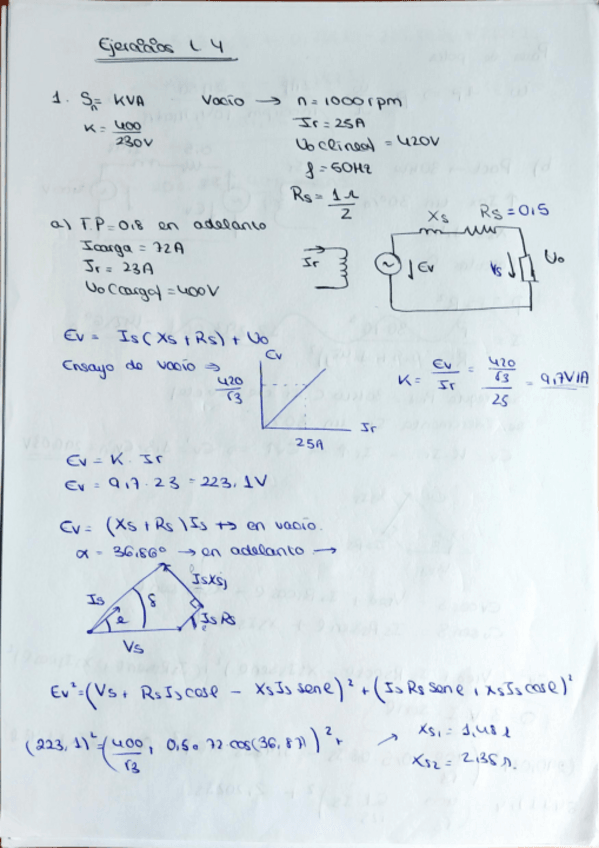 Ejercicios L 4
1. Sn = KVA   Vacio → n = 1000 rpm
K = 400/230V   Ir = 25A
Uo (linea) = 420V
f = 50Hz
Rs = 1Ω/2
a) F.P = 0.8 en adelanto
Icarga = 72A
Ir = 23A
Uo (carga) = 400V
Xs   Rs = 0.5
Ir   Ev   Vs   Uo
Ev = Is (Xs + Rs) + Uo
Ensayo de vacio ⇒ 420/√3   Ev   Ir   25A
K = Ev/Ir = 420/√3/25 = 9,7 V/A
Ev = K · Ir
Ev = 9,7 · 23 = 223,1V
Ev = (Xs + Rs) Is → en vacio.
α = 36,86º → en adelanto →
Is   δ   φ   IsXsj   IsRs   Vs
Ev² = (Vs + RsIs cosφ - XsIs senφ)² + (IsRs senφ + XsIs cosφ)²
(223,1)² = (400/√3 + 0,5 · 72 cos(36,87))² + → Xs1 = 1,48 Ω
Xs2 = 2,35 Ω.